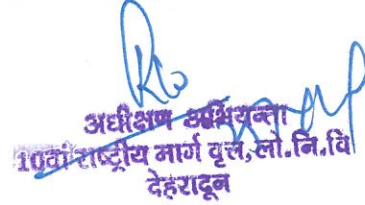 अधीक्षण अभियन्ता
10वां राष्ट्रीय मार्ग वृत्त, लो.नि.वि
देहरादून